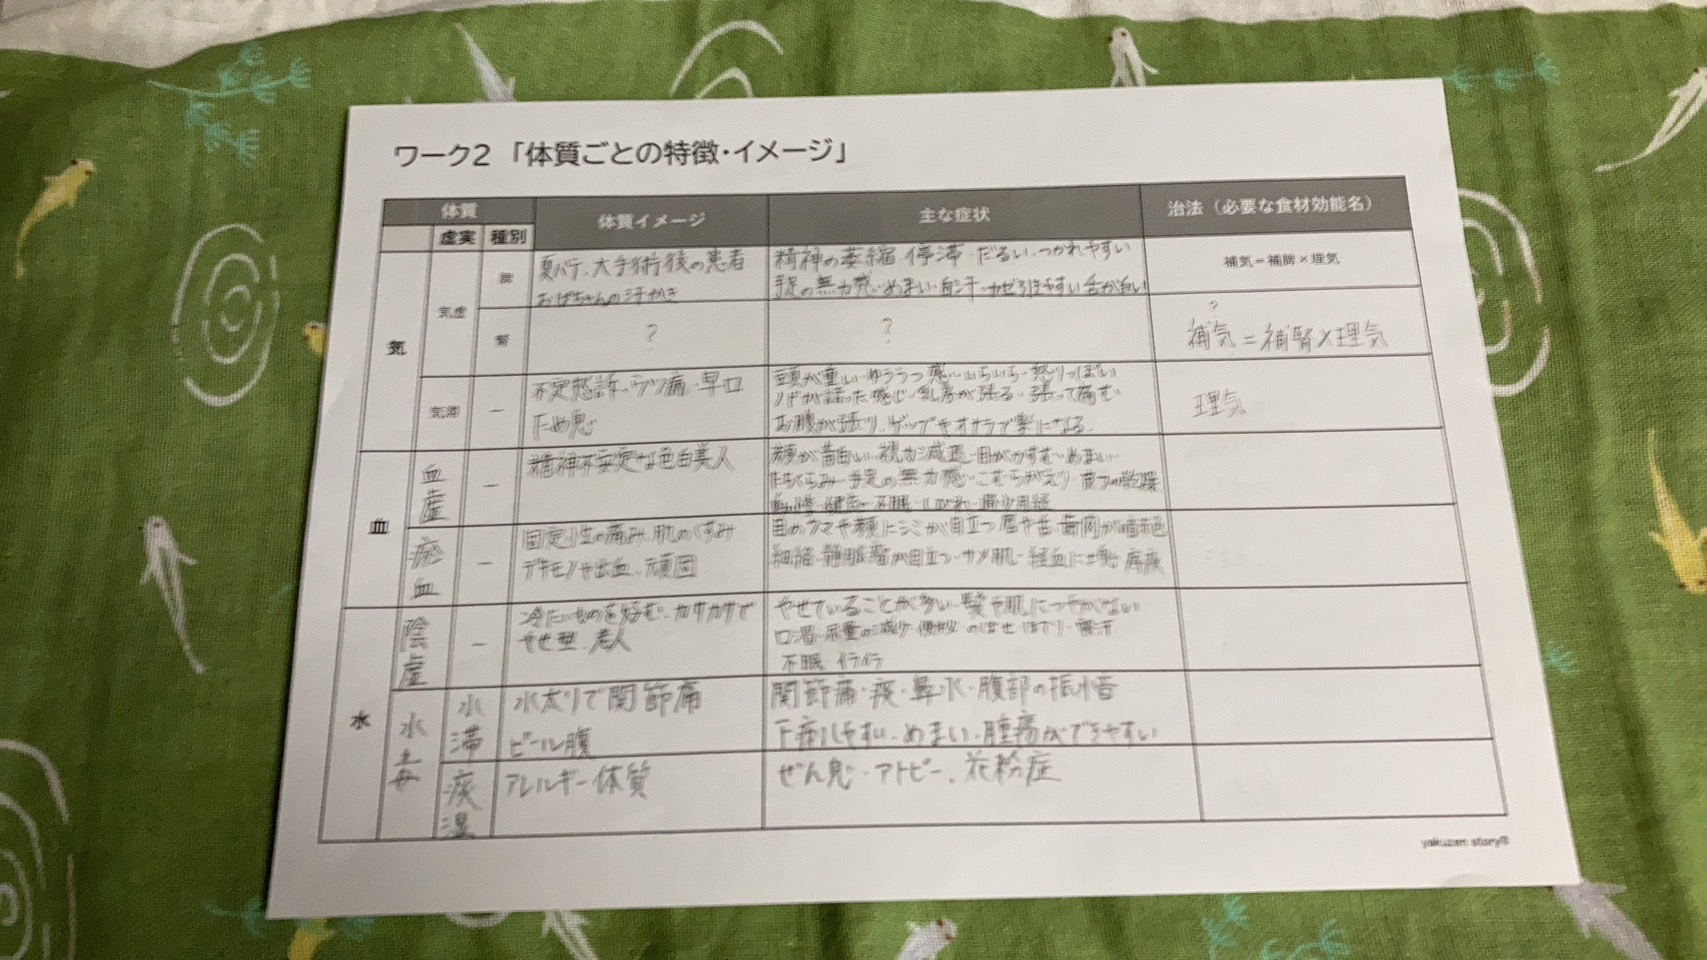 ワーク2 「体質ごとの特徴・イメージ」
体質
体質イメージ
主な症状
治法（必要な食材効能名）
虚実
種別
気
気虚
脾
夏バテ、大手術後の患者
おばちゃんの汗かき
精神の萎縮 停滞・だるい・つかれやすい
手足の無力感・めまい・自汗・カゼ引きやすい 舌が白い
補気＝補脾×理気
腎
?
?
?
補気＝補腎×理気
気滞
ー
不定愁訴、ウツ病・早口
ため息
頭が重い・ゆううつ感・いらいら・怒りっぽい
ノドが詰った感じ・乳房が張る・張って痛む
お腹が張り、ゲップやオナラで楽になる
理気
血
血虚
ー
精神不安定な色白美人
顔が青白い・視力減退・目がかすむ・めまい・
たちくらみ・手足の無力感・こむらがえり・皮フの乾燥
不眠・しびれ・過少月経
瘀血
ー
固定性の痛み、肌のくすみ
デキモノや出血、頑固
目のクマや顔にシミが目立つ 唇や舌・歯肉が暗赤色
細絡・静脈瘤が目立つ・サメ肌・経血に塊
水
陰虚
ー
冷たいものを好む・カサカサで
やせ型、老人
やせていることが多い・髪や肌につやがない
口渇・尿量の減少・便秘 のぼせ ほてり・寝汗
不眠 イライラ
水毒
水滞
水太りで関節痛
ビール腹
関節痛・痰・鼻水・腹部の振水音
下痢しやすい・めまい・腫瘍ができやすい
痰湿
アレルギー体質
ぜん息・アトピー、花粉症
yakuzen story®